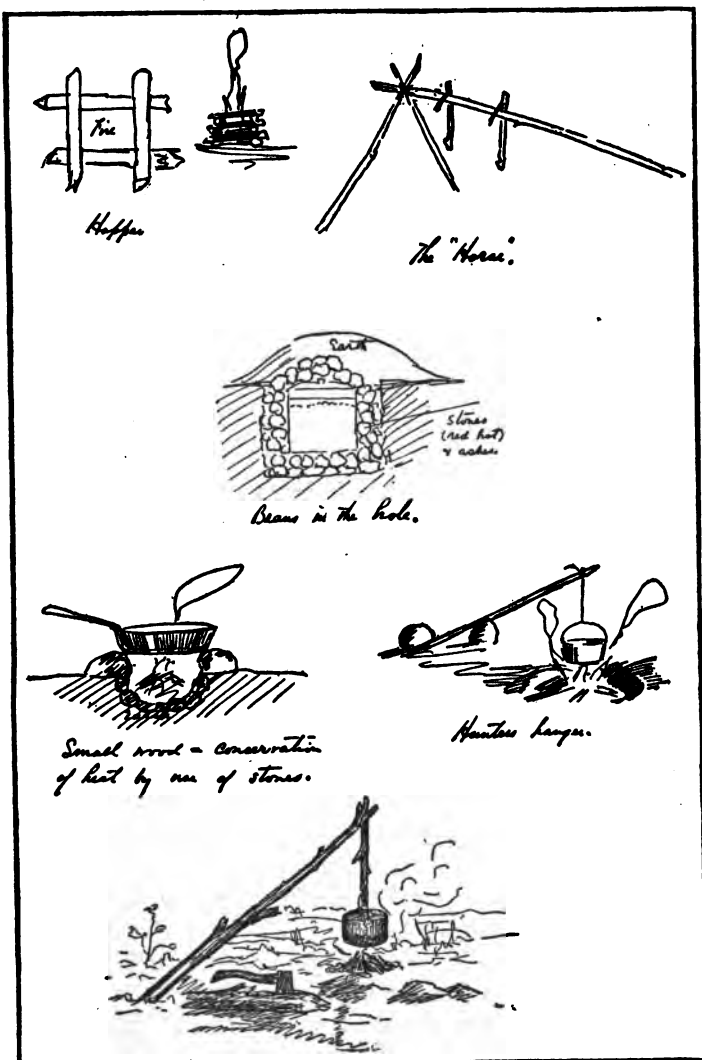 Fire
Hopper
The "Horse".
Earth
Stones
(red hot)
& ashes
Beans in the hole.
Small wood - conservation
of heat by use of stones.
Hunters hanger.